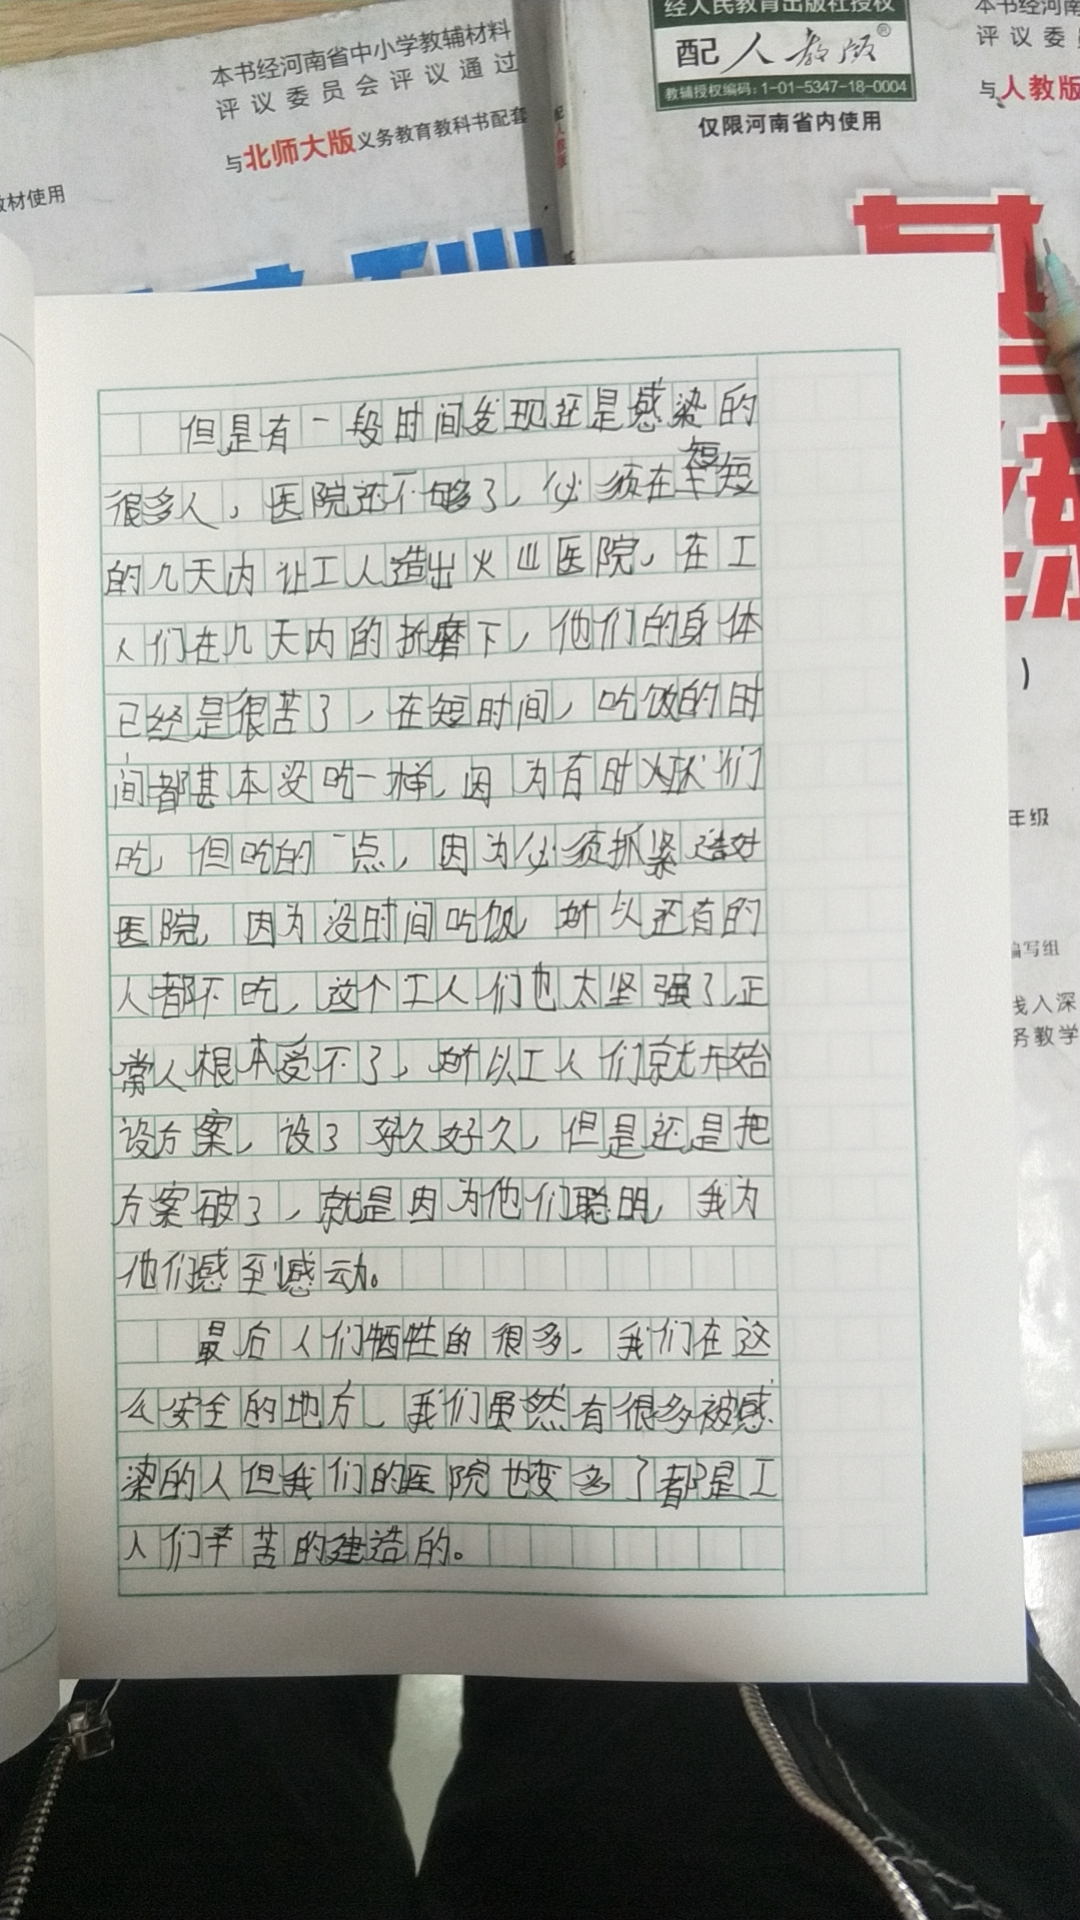 本书经河南省中小学教辅材料
评议委员会评议通过
与北师大版义务教育教科书配套
教材使用
经人民教育出版社授权
配人教版®
教辅授权编码:1-01-5347-18-0004
仅限河南省内使用
本书经河南
评议委
与人教版
但是有一段时间发现还是感染的
很多人，医院还不够了，必须在短短
的几天内让工人造出火山医院，在工
人们在几天内的折磨下，他们的身体
已经是很苦了，在短时间，吃饭的时
间都甚本没吃一样，因为有时候他们
吃，但吃的一点，因为必须抓紧造好
医院，因为没时间吃饭，所以还有的
人都不吃，这个工人们也太坚强了，正
常人根本受不了，所以工人们就开始
设方案，设了好久好久，但是还是把
方案破了，就是因为他们聪明，我为
他们感到感动。
最后人们牺牲的很多，我们在这
么安全的地方，我们虽然有很多被感
染的人但我们的医院也变多了都是工
人们辛苦的建造的。
)
年级
编写组
浅入深
务教学